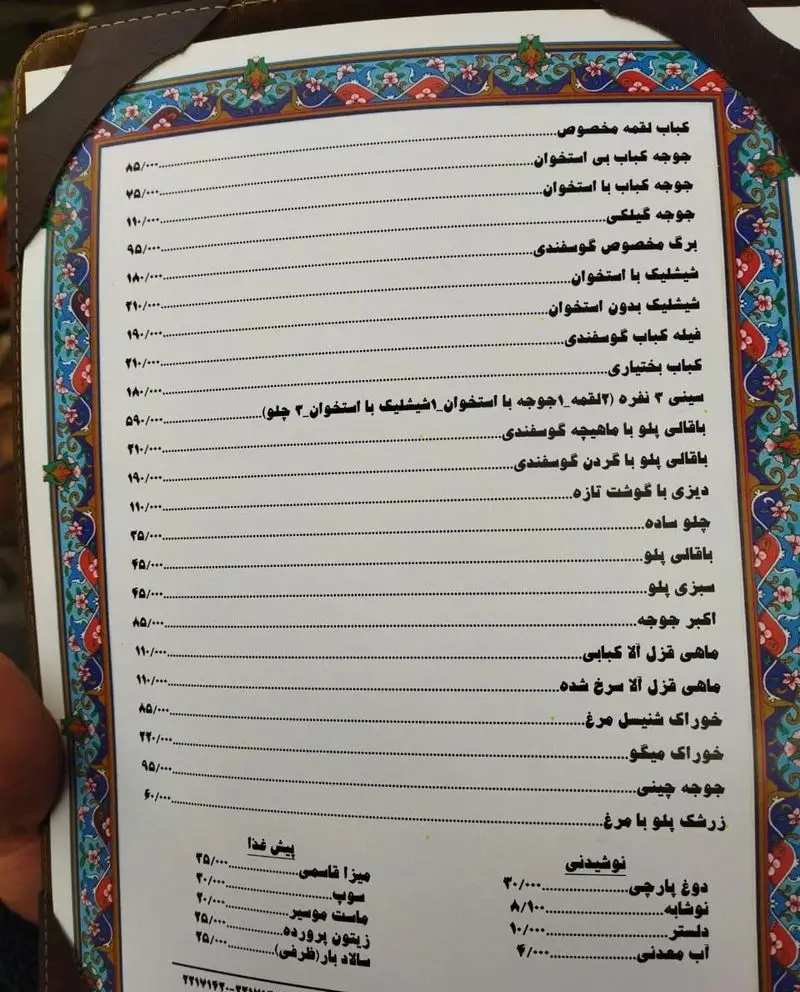 کباب لقمه مخصوص..........۸۵/۰۰۰
جوجه کباب بی استخوان..........۷۵/۰۰۰
جوجه کباب با استخوان..........۱۱۰/۰۰۰
جوجه گیلکی..........۹۵/۰۰۰
برگ مخصوص گوسفندی..........۱۸۰/۰۰۰
شیشلیک با استخوان..........۲۱۰/۰۰۰
شیشلیک بدون استخوان..........۱۹۰/۰۰۰
فیله کباب گوسفندی..........۲۱۰/۰۰۰
کباب بختیاری..........۱۸۰/۰۰۰
سینی ۳ نفره (۲لقمه_۱جوجه با استخوان_۱شیشلیک با استخوان_۳ چلو)..........۵۹۰/۰۰۰
باقالی پلو با ماهیچه گوسفندی..........۲۱۰/۰۰۰
باقالی پلو با گردن گوسفندی..........۱۹۰/۰۰۰
دیزی با گوشت تازه..........۱۱۰/۰۰۰
چلو ساده..........۳۵/۰۰۰
باقالی پلو..........۴۵/۰۰۰
سبزی پلو..........۴۵/۰۰۰
اکبر جوجه..........۸۵/۰۰۰
ماهی قزل آلا کبابی..........۱۱۰/۰۰۰
ماهی قزل آلا سرخ شده..........۱۱۰/۰۰۰
خوراک شنیسل مرغ..........۸۵/۰۰۰
خوراک میگو..........۲۲۰/۰۰۰
جوجه چینی..........۹۵/۰۰۰
زرشک پلو با مرغ..........۶۰/۰۰۰
نوشیدنی
دوغ پارچی..........۳۰/۰۰۰
نوشابه..........۸/۱۰۰
دلستر..........۱۰/۰۰۰
آب معدنی..........۴/۰۰۰
پیش غذا
میزا قاسمی..........۳۵/۰۰۰
سوپ..........۲۰/۰۰۰
ماست موسیر..........۲۰/۰۰۰
زیتون پرورده..........۲۵/۰۰۰
سالاد بار(ظرفی)..........۲۵/۰۰۰